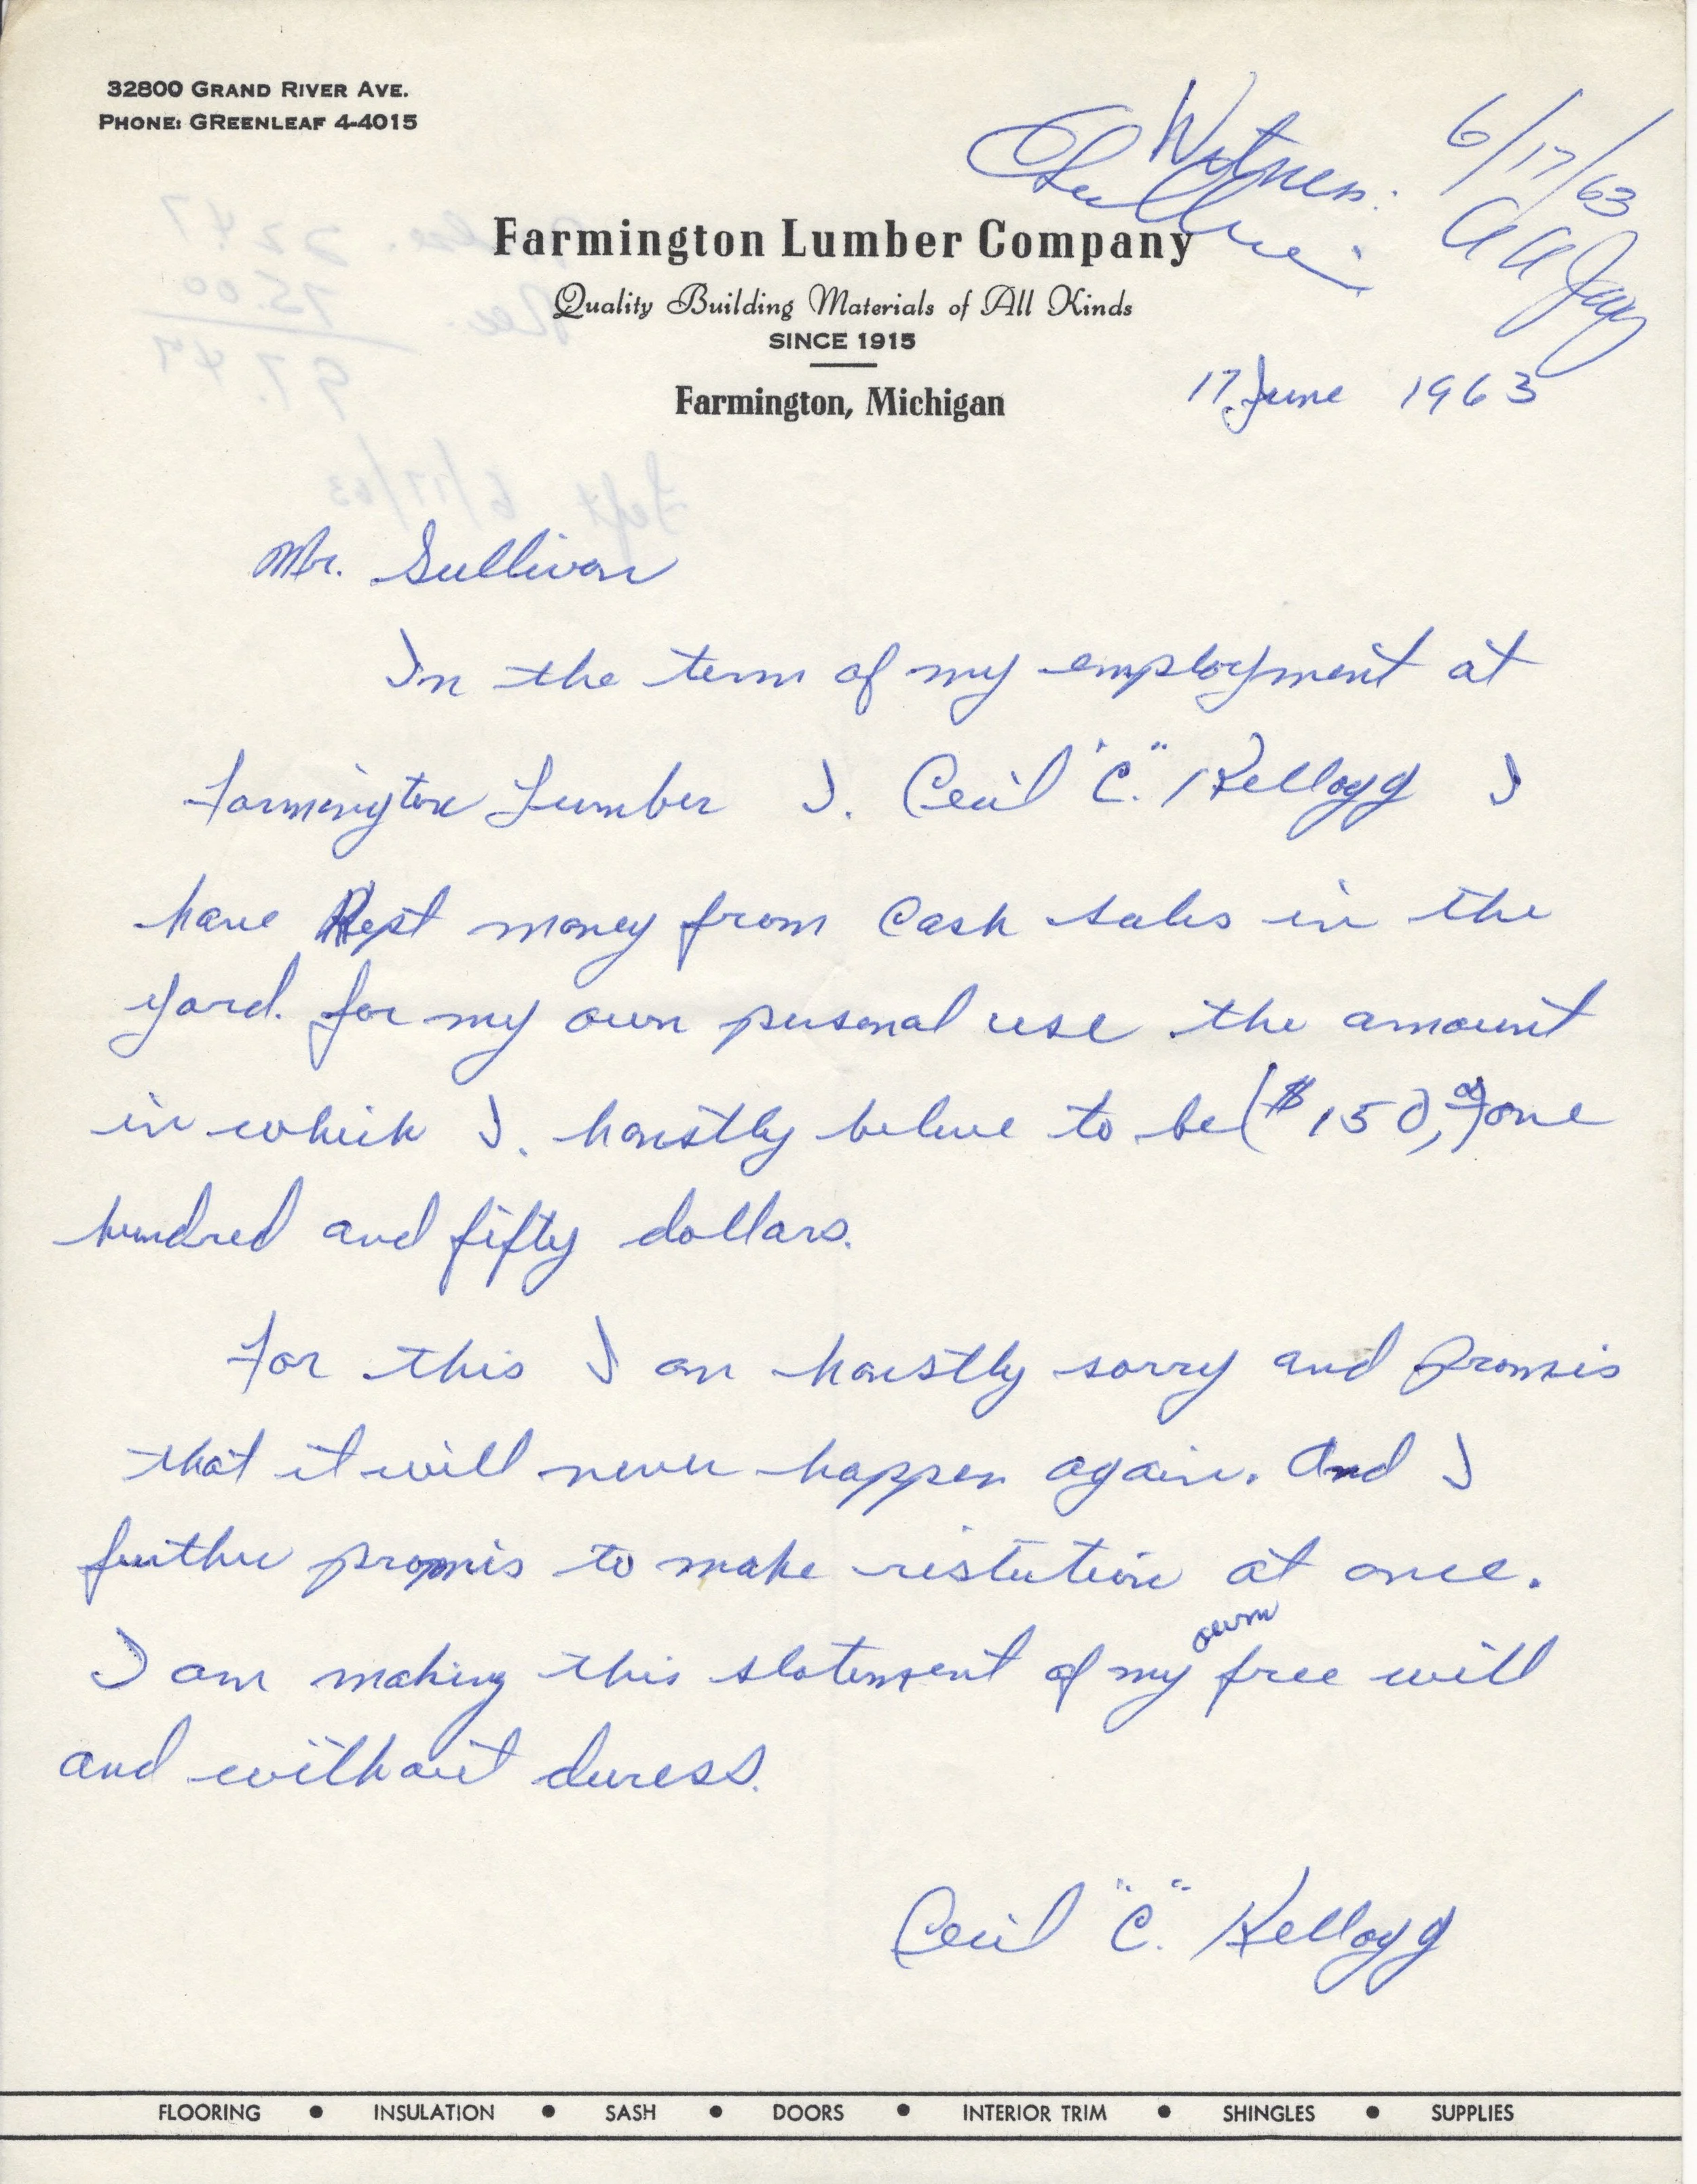 32800 GRAND RIVER AVE.
PHONE: GREENLEAF 4-4015
Witness: 6/17/63
Farmington Lumber Company
Quality Building Materials of All Kinds
SINCE 1915
Farmington, Michigan
17 June 1963
22.47
75.00
97.47
6/17/63
Mr. Sullivan
In the term of my employment at
Farmington Lumber I. Cecil "C." Kellogg I
have Kept money from Cash sales in the
yard. for my own pusonal use the amount
in which I. honistly beleve to be ($150,00) one
hundred and fifty dollars.
For this I am honistly sorry and promis
that it will never happen again. And I
further promis to make ristution at once.
I am making this statement of my own free will
and without duress.
Cecil "C." Kellogg
FLOORING • INSULATION • SASH • DOORS • INTERIOR TRIM • SHINGLES • SUPPLIES